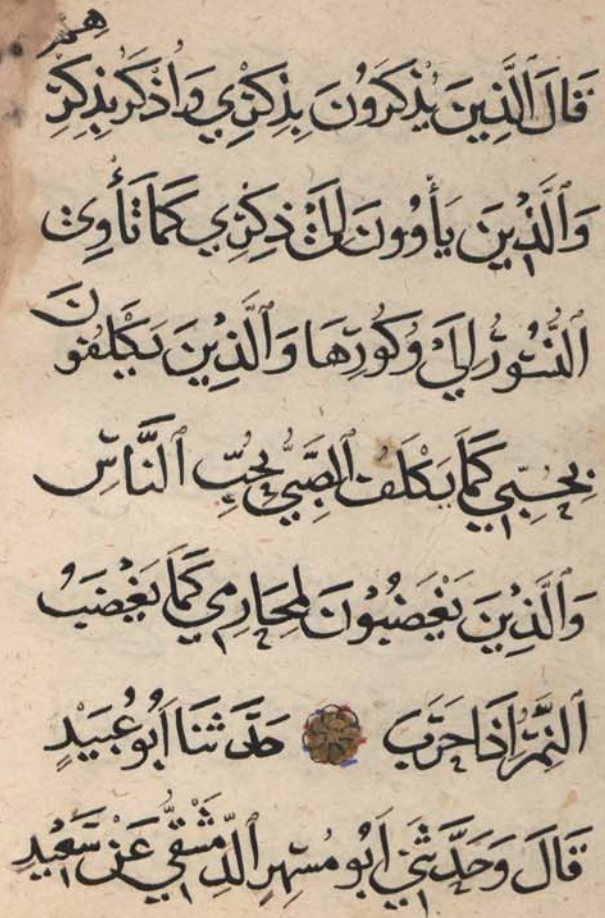 قَالَ ٱلَّذِينَ يُذْكَرُونَ بِذِكْرِي وَأُذْكَرُ بِذِكْرِهِمْ
وَٱلَّذِينَ يَأْوُونَ إِلَىٰ ذِكْرِي كَمَا تَأْوِي
ٱلنُّسُورُ إِلَىٰ وُكُورِهَا وَٱلَّذِينَ يَكْلَفُونَ
بِحُبِّي كَمَا يَكْلَفُ ٱلصَّبِيُّ بِحُبِّ ٱلنَّاسِ
وَٱلَّذِينَ يَغْضَبُونَ لِمَحَارِمِي كَمَا يَغْضَبُ
ٱلنَّمِرُ إِذَا حَرِبَ حَدَّثَنَا أَبُو عُبَيْدٍ
قَالَ وَحَدَّثَنِي أَبُو مُسْهِرٍ ٱلدِّمَشْقِيُّ عَنْ سَعِيدِ